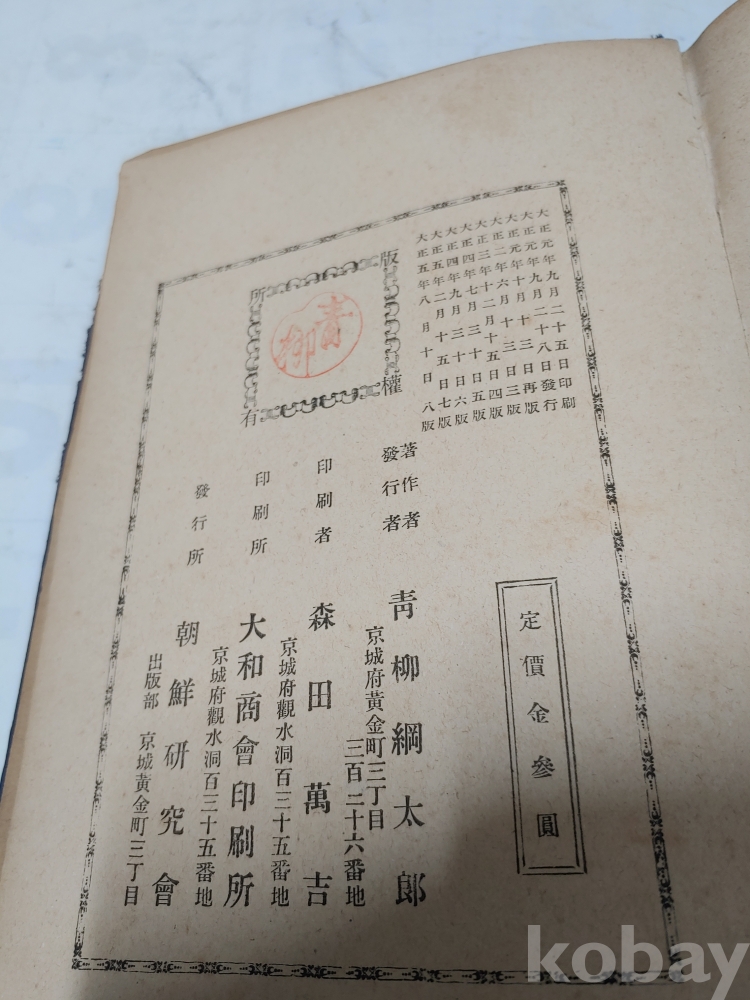 大正元年九月二十五日印刷
大正元年九月二十八日發行
大正元年十月十三日再版
大正二年六月十三日三版
大正三年十二月十五日四版
大正四年七月三十日五版
大正四年九月三十日六版
大正五年二月十五日七版
大正五年八月十日八版
版權所有
青柳
定價金參圓
著作者
發行者
靑柳綱太郎
京城府黃金町三丁目
三百二十六番地
印刷者
森田萬吉
京城府觀水洞百三十五番地
印刷所
大和商會印刷所
京城府觀水洞百三十五番地
發行所
朝鮮硏究會
出版部 京城黃金町三丁目
kobay